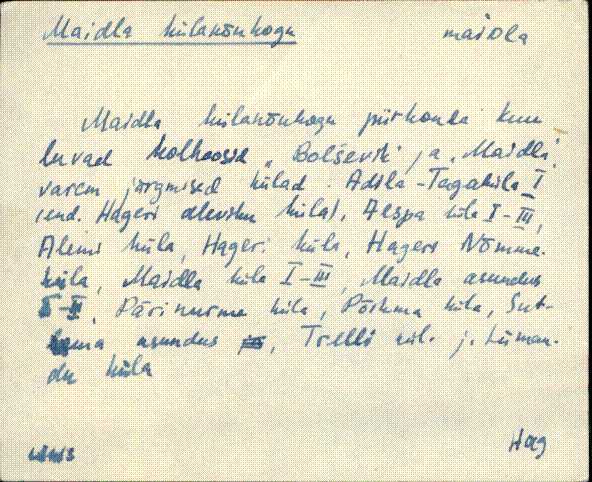 Maidla külanõukogu maidla
Maidla külanõukogu piirkonda kuu
luvad kolhoosid „Bolševik" ja „Maidla",
varem järgmised külad: Adila-Tagaküla I
(end. Hageri aleviku küla), Aespa küla I-III,
Alemi küla, Hageri küla, Hageri Nõmme-
küla, Maidla küla I-III, Maidla asundus
I-II, Pärinurme küla, Põikma küla, Sut-
lema asundus, Trelli kül. j. Lüman-
du küla
Hag